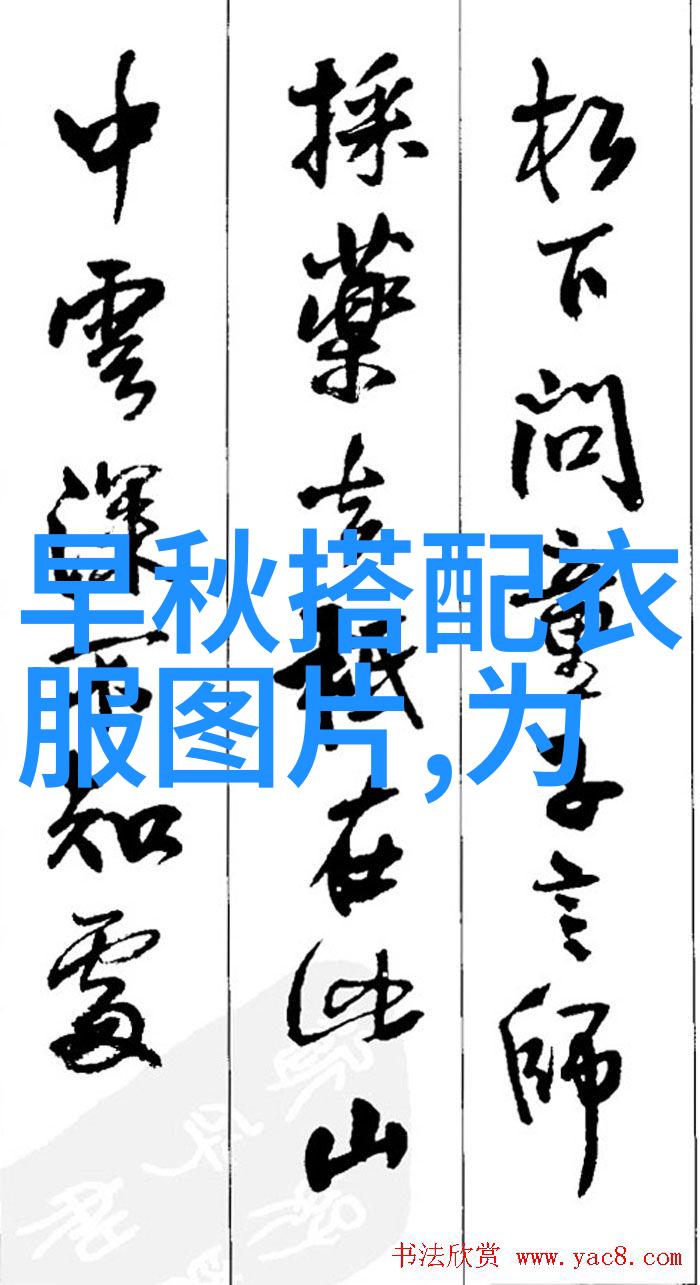 松下问童子言师
採藥去祇在此山
中雲深不知處
早秋搭配衣
服图片,为
书法欣赏 www.yac8.com